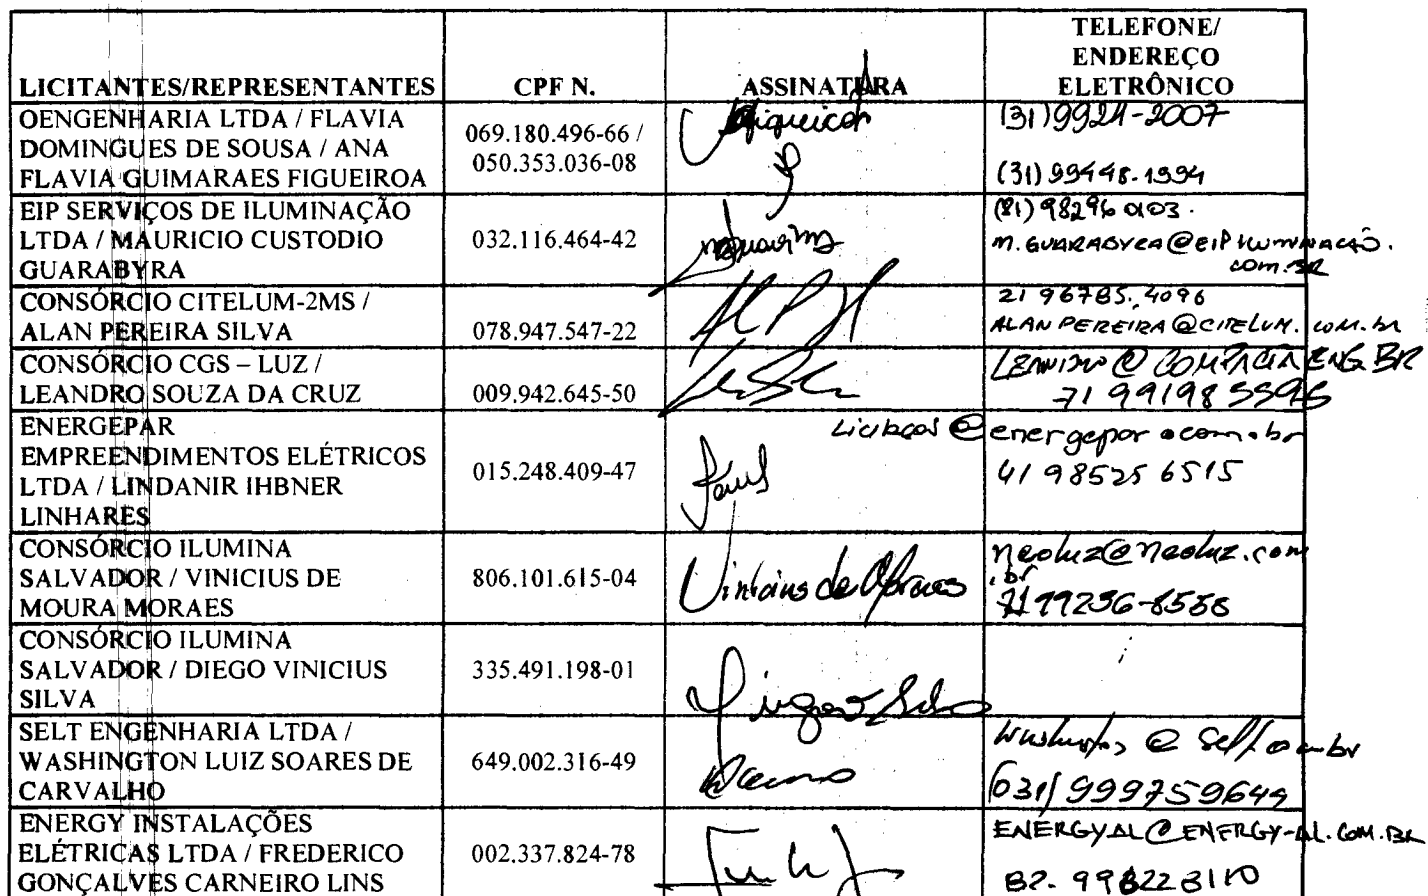 LICITANTES/REPRESENTANTES CPF N. ASSINATURA TELEFONE/
ENDEREÇO
ELETRÔNICO
OENGENHARIA LTDA / FLAVIA
DOMINGUES DE SOUSA / ANA
FLAVIA GUIMARAES FIGUEIROA
069.180.496-66 /
050.353.036-08
(31) 99448-1994
EIP SERVIÇOS DE ILUMINAÇÃO
LTDA / MAURICIO CUSTODIO
GUARABYRA
032.116.464-42
(81) 98296 0103.
M.GUARABYRA@EIPILUMINAÇÃO.
COM.BR
CONSÓRCIO CITELUM-2MS /
ALAN PEREIRA SILVA
078.947.547-22
21 96785.4096
ALAN PEREIRA@CITELUM.COM.br
CONSÓRCIO CGS – LUZ /
LEANDRO SOUZA DA CRUZ
009.942.645-50
71 991985595
ENERGEPAR
EMPREENDIMENTOS ELÉTRICOS
LTDA / LINDANIR IHBNER
LINHARES
015.248.409-47
@energepar.com.br
41 98525 6515
CONSÓRCIO ILUMINA
SALVADOR / VINICIUS DE
MOURA MORAES
806.101.615-04
Vinicius de Moraes
neoluz@neoluz.com
.br
CONSÓRCIO ILUMINA
SALVADOR / DIEGO VINICIUS
SILVA
335.491.198-01
SELT ENGENHARIA LTDA /
WASHINGTON LUIZ SOARES DE
CARVALHO
649.002.316-49
(031) 999759644
ENERGY INSTALAÇÕES
ELÉTRICAS LTDA / FREDERICO
GONÇALVES CARNEIRO LINS
002.337.824-78
ENERGYAL@ENERGY-AL.COM.BR
82. 998228110